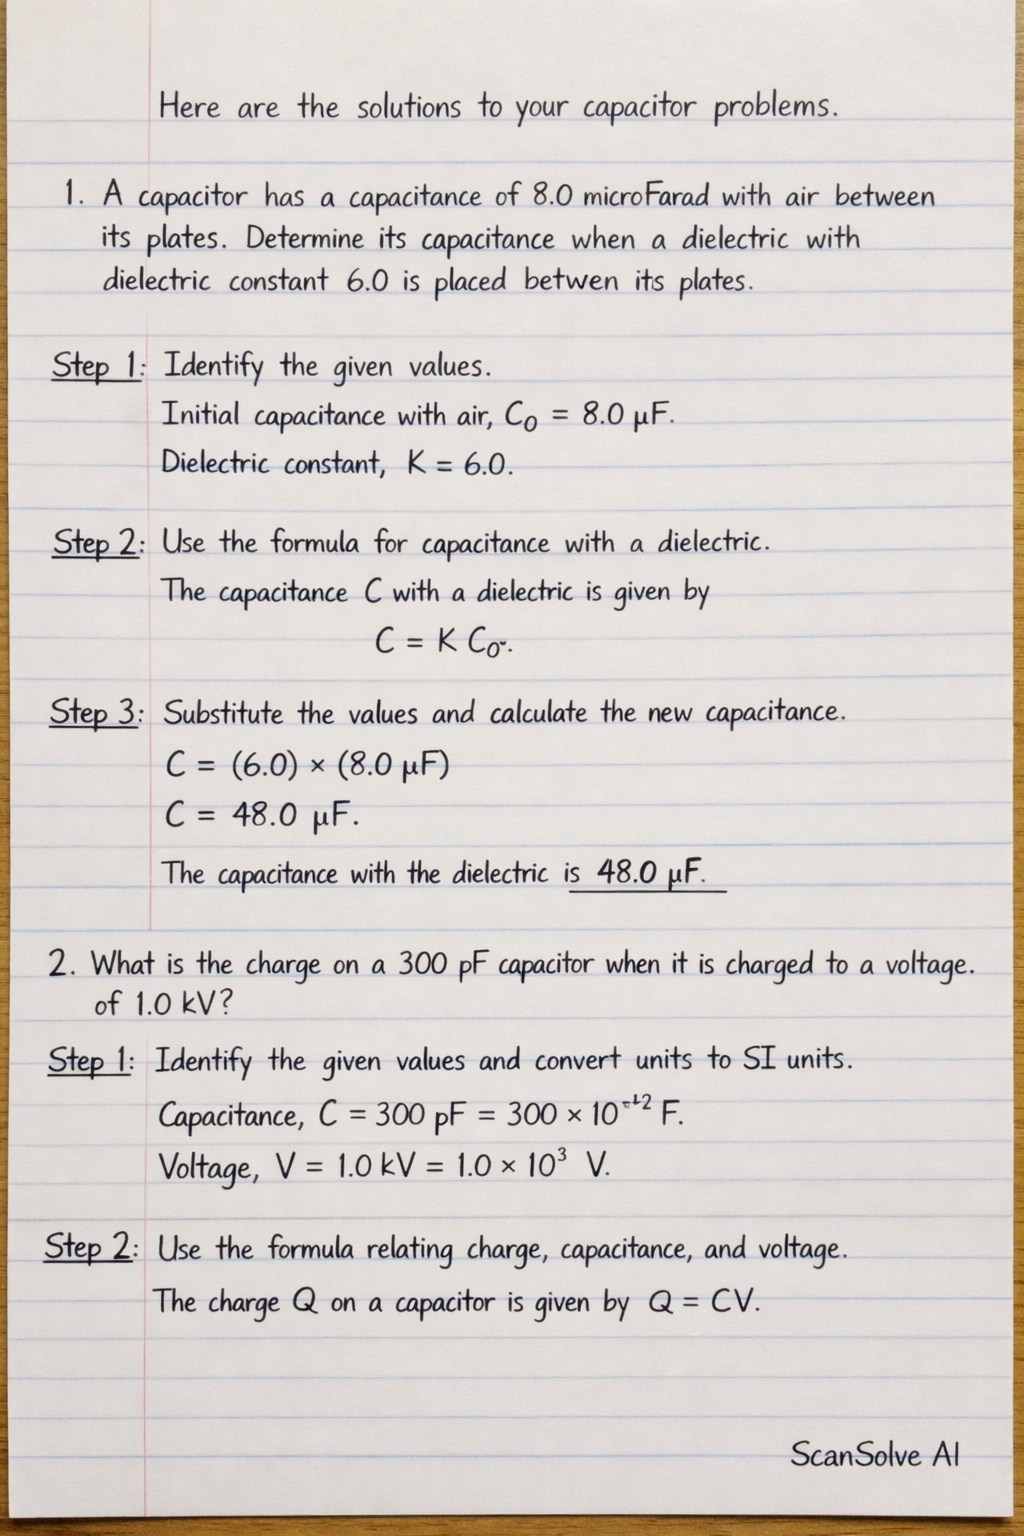 Here are the solutions to your capacitor problems.
1. A capacitor has a capacitance of 8.0 microFarad with air between
its plates. Determine its capacitance when a dielectric with
dielectric constant 6.0 is placed betwen its plates.
Step 1: Identify the given values.
Initial capacitance with air, C₀ = 8.0 μF.
Dielectric constant, K = 6.0.
Step 2: Use the formula for capacitance with a dielectric.
The capacitance C with a dielectric is given by
C = K C₀.
Step 3: Substitute the values and calculate the new capacitance.
C = (6.0) × (8.0 μF)
C = 48.0 μF.
The capacitance with the dielectric is 48.0 μF.
2. What is the charge on a 300 pF capacitor when it is charged to a voltage.
of 1.0 kV?
Step 1: Identify the given values and convert units to SI units.
Capacitance, C = 300 pF = 300 × 10⁻¹² F.
Voltage, V = 1.0 kV = 1.0 × 10³ V.
Step 2: Use the formula relating charge, capacitance, and voltage.
The charge Q on a capacitor is given by Q = CV.
ScanSolve AI